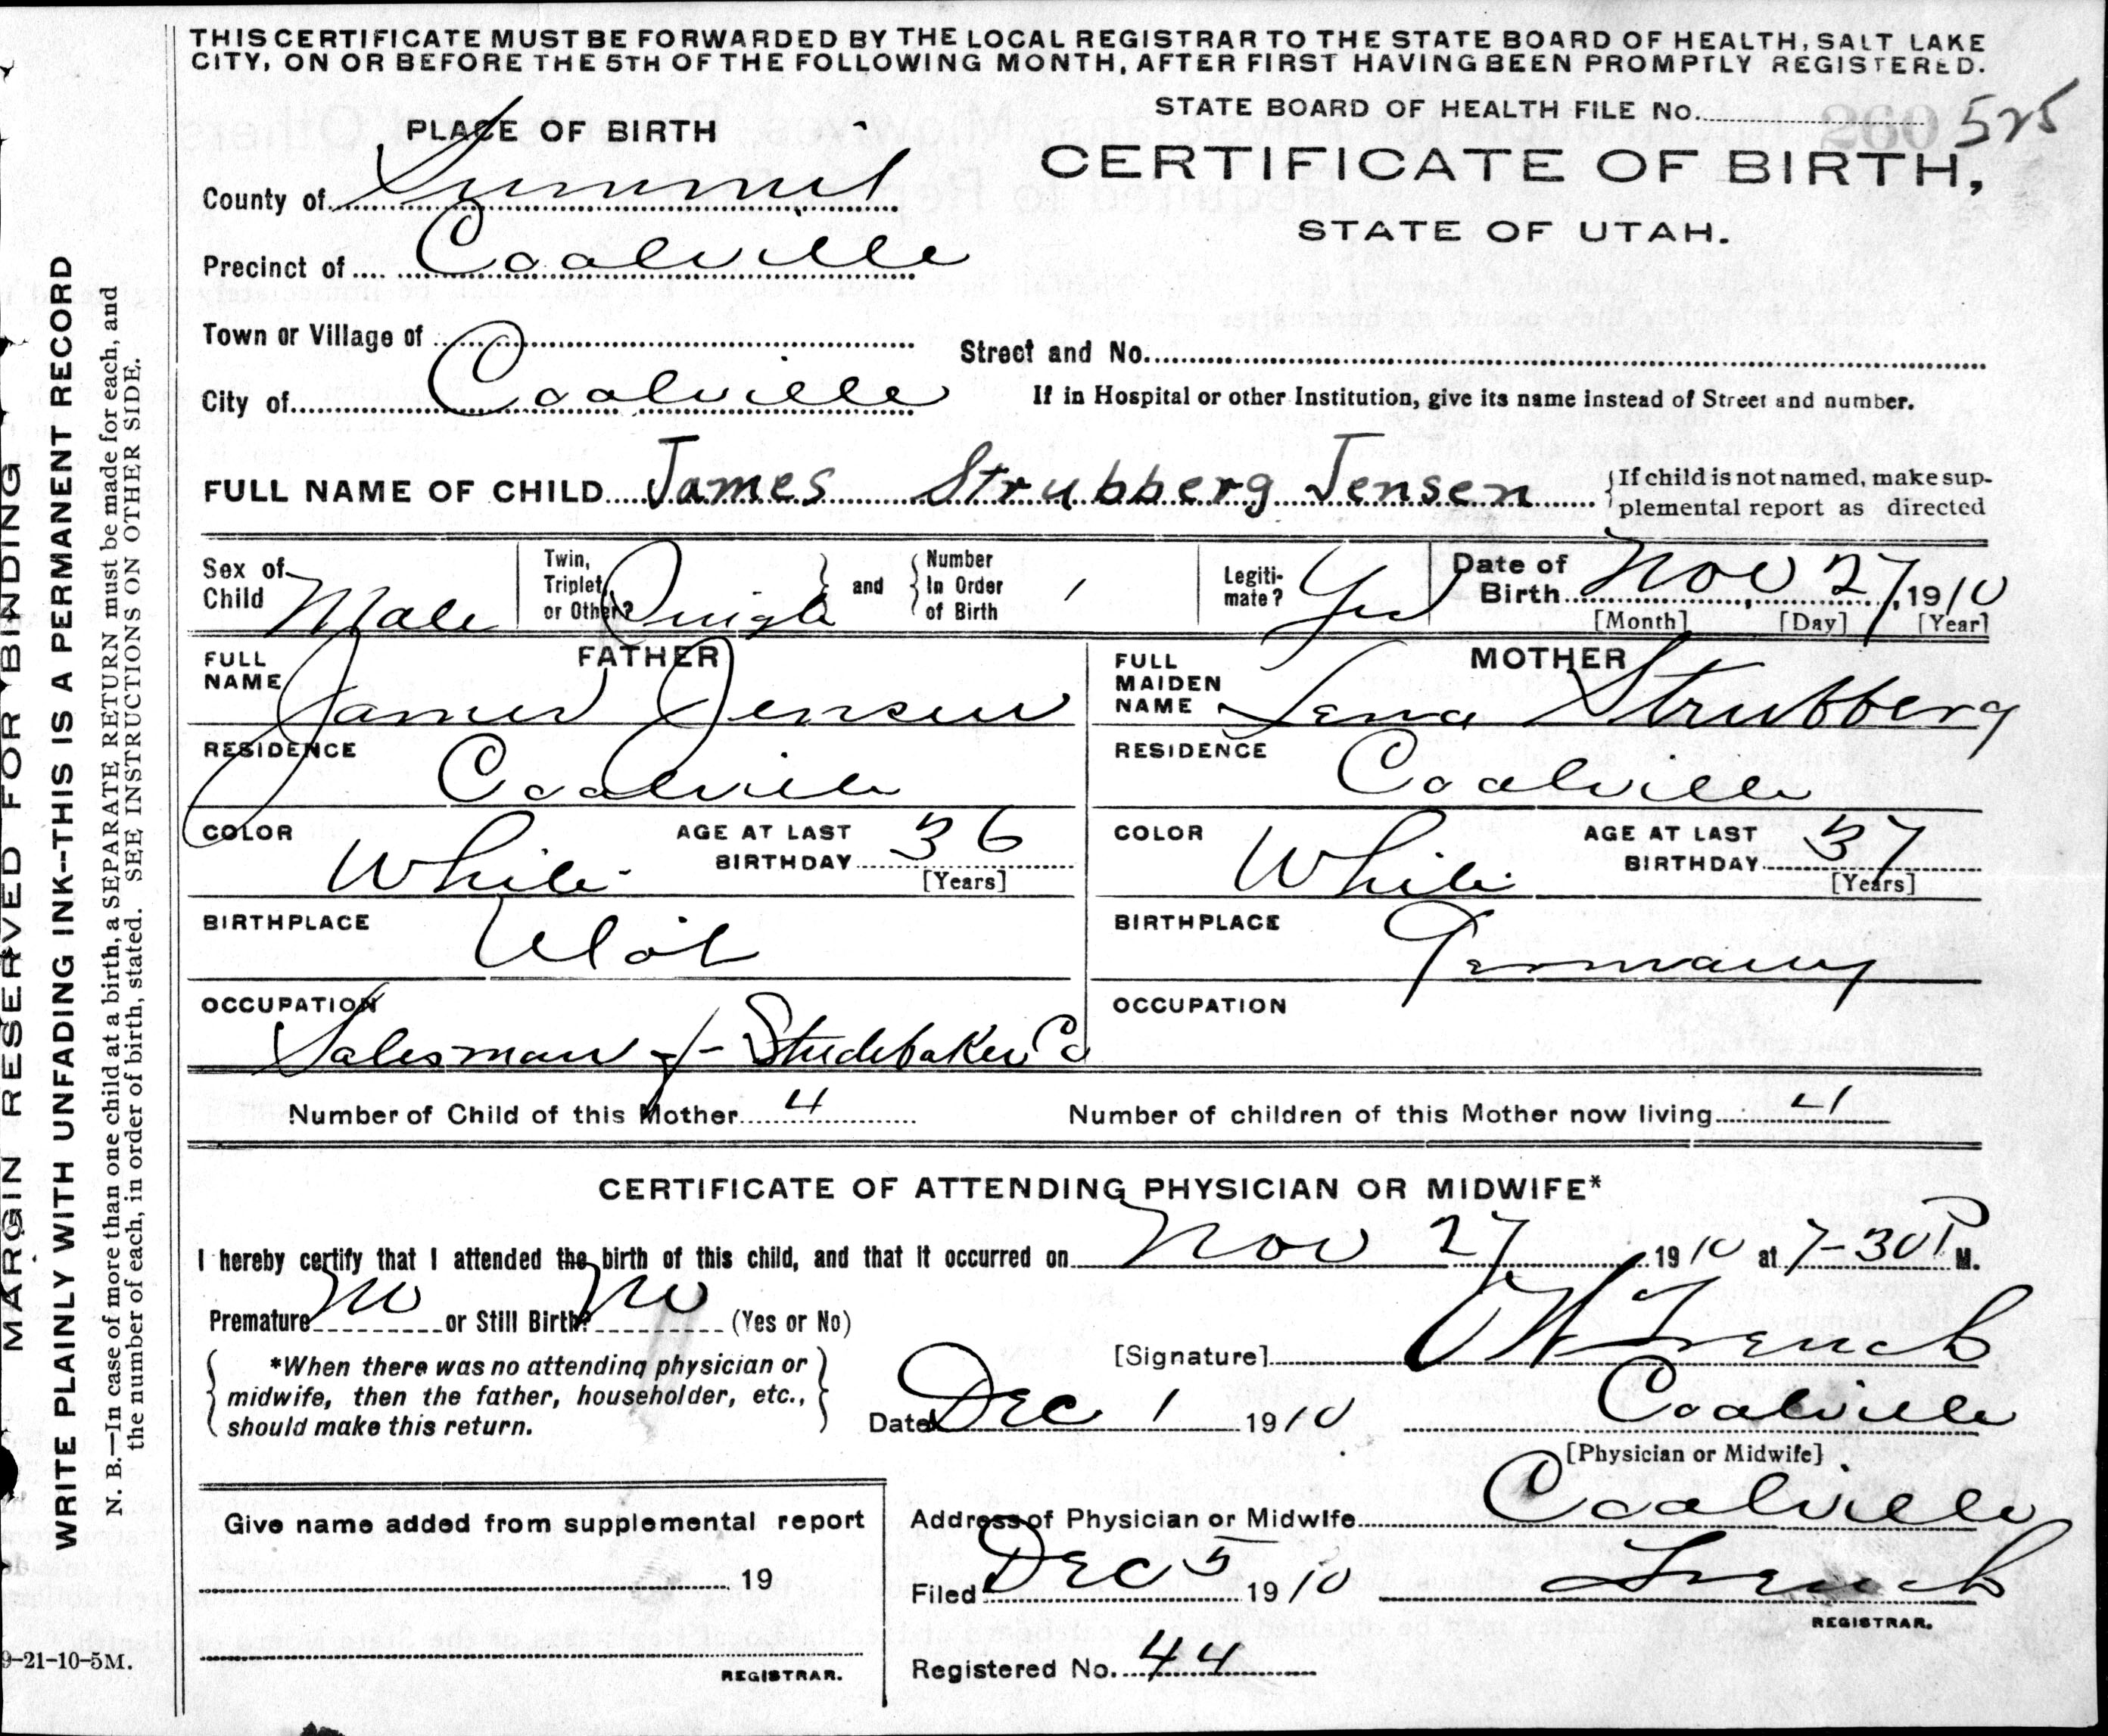 THIS CERTIFICATE MUST BE FORWARDED BY THE LOCAL REGISTRAR TO THE STATE BOARD OF HEALTH, SALT LAKE
CITY, ON OR BEFORE THE 5TH OF THE FOLLOWING MONTH, AFTER FIRST HAVING BEEN PROMPTLY REGISTERED.
STATE BOARD OF HEALTH FILE No. 260 525
PLACE OF BIRTH
CERTIFICATE OF BIRTH,
STATE OF UTAH.
County of Summit
Precinct of Coalville
Town or Village of
Street and No.
City of Coalville
If in Hospital or other Institution, give its name instead of Street and number.
FULL NAME OF CHILD James Strubberg Jensen
If child is not named, make sup-
plemental report as directed
Sex of Child Male
Twin, Triplet, or Other?
and
Number In Order of Birth 1
Legiti-mate? Yes
Date of Birth Nov 27, 1910
[Month] [Day] [Year]
FATHER
FULL NAME James Jensen
RESIDENCE Coalville
COLOR White
AGE AT LAST BIRTHDAY 36
[Years]
BIRTHPLACE Utah
OCCUPATION
Salesman of - Studebaker Co
MOTHER
FULL MAIDEN NAME Lena Strubberg
RESIDENCE Coalville
COLOR White
AGE AT LAST BIRTHDAY 37
[Years]
BIRTHPLACE Germany
OCCUPATION
Number of Child of this Mother 4
Number of children of this Mother now living 4
CERTIFICATE OF ATTENDING PHYSICIAN OR MIDWIFE*
I hereby certify that I attended the birth of this child, and that it occurred on Nov 27 1910 at 7-30 P M.
Premature No or Still Birth? No (Yes or No)
*When there was no attending physician or
midwife, then the father, householder, etc.,
should make this return.
[Signature]
Date Dec 1 1910
Coalville
[Physician or Midwife]
Address of Physician or Midwife Coalville
Give name added from supplemental report
19
REGISTRAR.
Filed Dec 5 1910
REGISTRAR.
Registered No. 44
9-21-10-5M.
MARGIN RESERVED FOR BINDING
WRITE PLAINLY WITH UNFADING INK--THIS IS A PERMANENT RECORD
N. B.—In case of more than one child at a birth, a SEPARATE RETURN must be made for each, and
the number of each, in order of birth, stated. SEE INSTRUCTIONS ON OTHER SIDE.